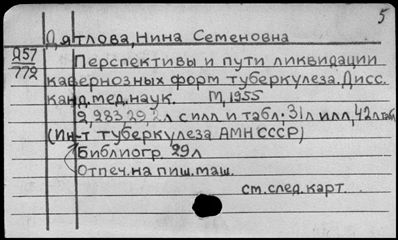 5
Дятлова, Нина Семеновна
Д57
772
Перспективы и пути ликвидации
кавернозных форм туберкулеза. Дисс.
канд. мед. наук. М, 1955
2, 283, 29, л с илл и табл; 31л илл, 42л табл
(Ин-т туберкулеза АМН СССР)
Библиогр. 29л
Отпеч. на пиш. маш.
см. след. карт.